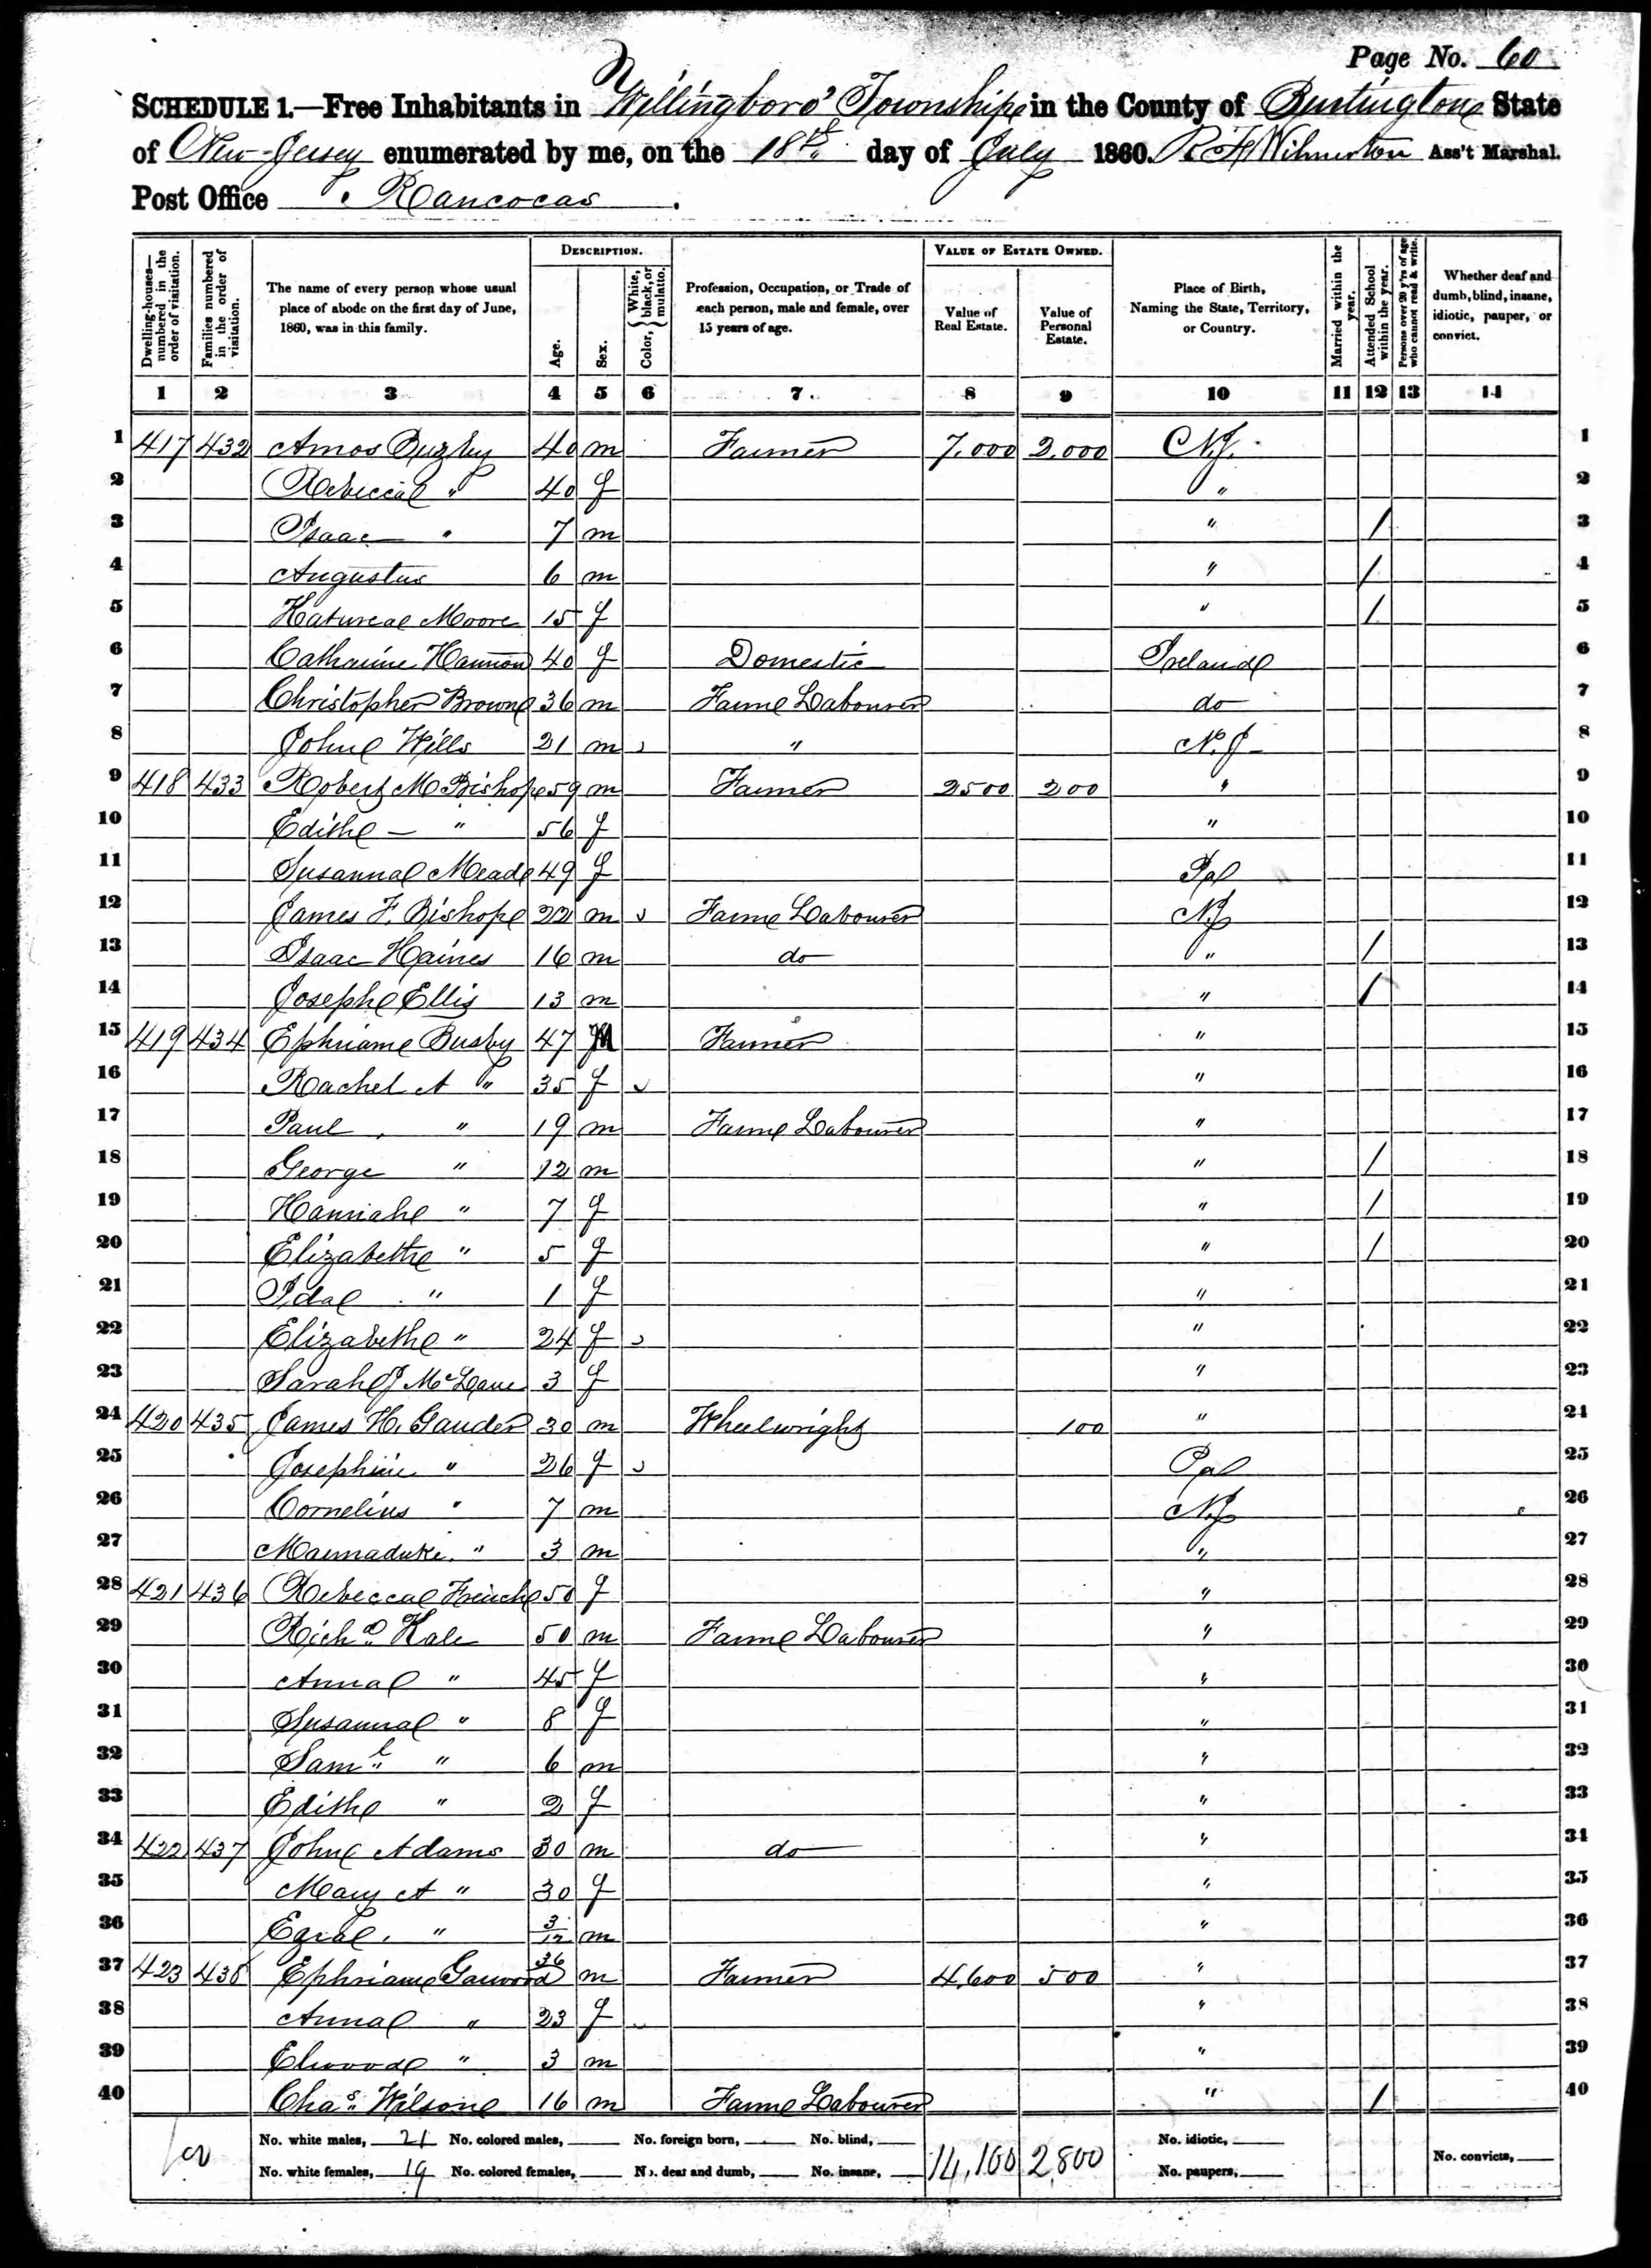 Page No. 60
SCHEDULE 1.—Free Inhabitants in Willingboro' Township in the County of Burlington State
of New-Jersey enumerated by me, on the 18th day of July 1860. Ass't Marshal.
Post Office Rancocas
Dwelling-houses—numbered in the order of visitation.
Families numbered in the order of visitation.
The name of every person whose usual place of abode on the first day of June, 1860, was in this family.
DESCRIPTION.
Age.
Sex.
Color, White, black, or mulatto.
Profession, Occupation, or Trade of each person, male and female, over 15 years of age.
VALUE OF ESTATE OWNED.
Value of Real Estate.
Value of Personal Estate.
Place of Birth, Naming the State, Territory, or Country.
Married within the year.
Attended School within the year.
Persons over 20 y'rs of age who cannot read & write.
Whether deaf and dumb, blind, insane, idiotic, pauper, or convict.
1 2 3 4 5 6 7 8 9 10 11 12 13 14
1 417 432 Amos Buzby 40 m Farmer 7,000 2,000 N.J. 1
2 Rebecca " 40 f " 2
3 Isaac " 7 m " / 3
4 Augustus 6 m " / 4
5 Moore 15 f " / 5
6 Catharine Hannon 40 f Domestic Ireland 6
7 Christopher Brown 36 m Farm Labourer do 7
8 John Wills 21 m " N.J 8
9 418 433 Robert M Bishop 59 m Farmer 2500 200 " 9
10 Edith — " 56 f " 10
11 Susanna Mead 49 f Pa 11
12 James F. Bishop 22 m Farm Labourer N.J 12
13 Isaac Haines 16 m do " / 13
14 Joseph Ellis 13 m " / 14
15 419 434 Ephriam Busby 47 M Farmer " 15
16 Rachel A " 35 f " 16
17 Paul " 19 m Farm Labourer " 17
18 George " 12 m " / 18
19 Hannah " 7 f " / 19
20 Elizabeth " 5 f " / 20
21 Ida " 1 f " 21
22 Elizabeth " 24 f " 22
23 Sarah J McLane 3 f " 23
24 420 435 James H. Gauder 30 m Wheelwright 100 " 24
25 Josephine " 26 f Pa 25
26 Cornelius " 7 m N.J 26
27 Marmaduke " 3 m " 27
28 421 436 Rebecca French 50 f " 28
29 Richd Kale 50 m Farm Labourer " 29
30 Anna " 45 f " 30
31 Susanna " 8 f " 31
32 Saml " 6 m " 32
33 Edith " 2 f " 33
34 422 437 John Adams 30 m do " 34
35 Mary A " 30 f " 35
36 Ezra " 3/12 m " 36
37 423 438 Ephriam Garwood 36 m Farmer 4,600 500 " 37
38 Anna " 23 f " 38
39 Elwood " 3 m " 39
40 Chas Wilson 16 m Farm Labourer " / 40
No. white males, 21 No. colored males, No. foreign born, No. blind, 14,100 2800 No. idiotic,
No. white females, 19 No. colored females, No. deaf and dumb, No. insane, No. paupers, No. convicts,